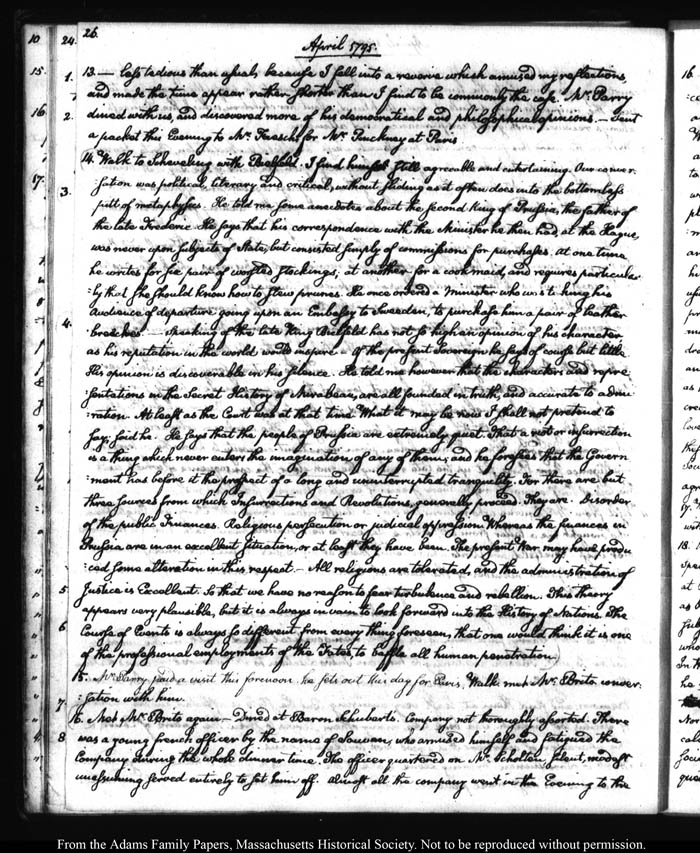 26.
April 1795.
13. — Less tedious than usual, because I fell into a reverie which amused my reflections,
and made the time appear rather shorter than I find to be commonly the case. Mr. Parry
dined with us, and discovered more of his democratical and philosophical opinions. — Sent
a packet this Evening to Mr. for Mr. Pinckney at Paris
14. Walk to Scheveling with Bielfeld. I find himself still agreeable and entertaining. Our conver-
:sation was political, literary and critical, without sliding as it often does into the bottomless
pitt of metaphysics. He told me some anecdotes about the second King of Prussia, the father of
the late Frederic. He says that his correspondence with the Minister he then had at the Hague,
was never upon subjects of State, but consisted simply of commissions for purchases. At one time
he writes for six pair of worsted stockings, at another for a cook maid, and requires particular-
:ly that she should know how to stew prunes. He once ordered a Minister who was taking his
Audience of departure going upon an Embassy to Sweeden, to purchase him a pair of leather
breeches. — Speaking of the late King Bielfeld has not so high an opinion of his character
as his reputation in the world would inspire. Of the present Sovereign he says of course but little
His opinion is discoverable in his silence. He told me however that the characters and repre-
:sentations in the Secret History of Mirabeau, are all founded in truth, and accurate to admi-
:ration. At least as the Court was at that time. What it may be now I shall not pretend to
say, said he. He says that the people of Prussia are extremely quiet. That a riot or insurrection
is a thing which never enters the imagination of any of them, and he foresees that the Govern-
:ment has before it the prospect of a long and uninterrupted tranquility. For there are but
three sources from which Insurrections and Revolutions, generally proceed. They are. Disorder
of the public Finances. Religious persecution or judicial oppression. Whereas the finances in
Prussia are in an excellent situation, or at least they have been. The present War may have produ-
:ced some alteration in this respect. — All religions are tolerated, and the administration of
Justice is Excellent. So that we have no reason to fear turbulence and rebellion. This theory
appears very plausible, but it is always in vain to look forward into the History of Nations. The
Course of Events is always so different from every thing foreseen, that one would think it is one
of the professional employments of the Fates to baffle all human penetration.
15. Mr. Parry paid a visit this forenoon. he sets out this day for Paris. Walk. met Mr. Brito. conver-
:sation with him.
16. Met Mr. Brito again — Dined at Baron Schubarts. Company not thoroughly assorted. There
was a young french officer by the name of Jouvan, who amused himself and fatigued the
Company during the whole dinner time. The officer quartered on Mr. Scholten, silent, modest
unassuming served entirely to set him off. Almost all the company went in the Evening to the
From the Adams Family Papers, Massachusetts Historical Society. Not to be reproduced without permission.